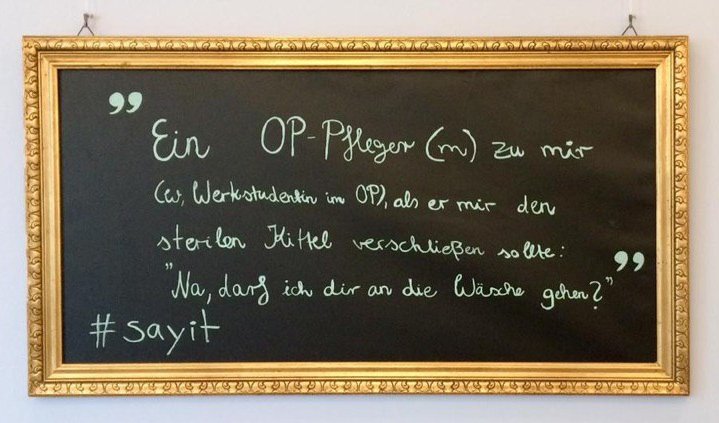 "
Ein OP-Pfleger (m) zu mir
(w, Werkstudentin im OP), als er mir den
sterilen Kittel verschließen sollte:
"Na, darf ich dir an die Wäsche gehen?"
"
#sayit